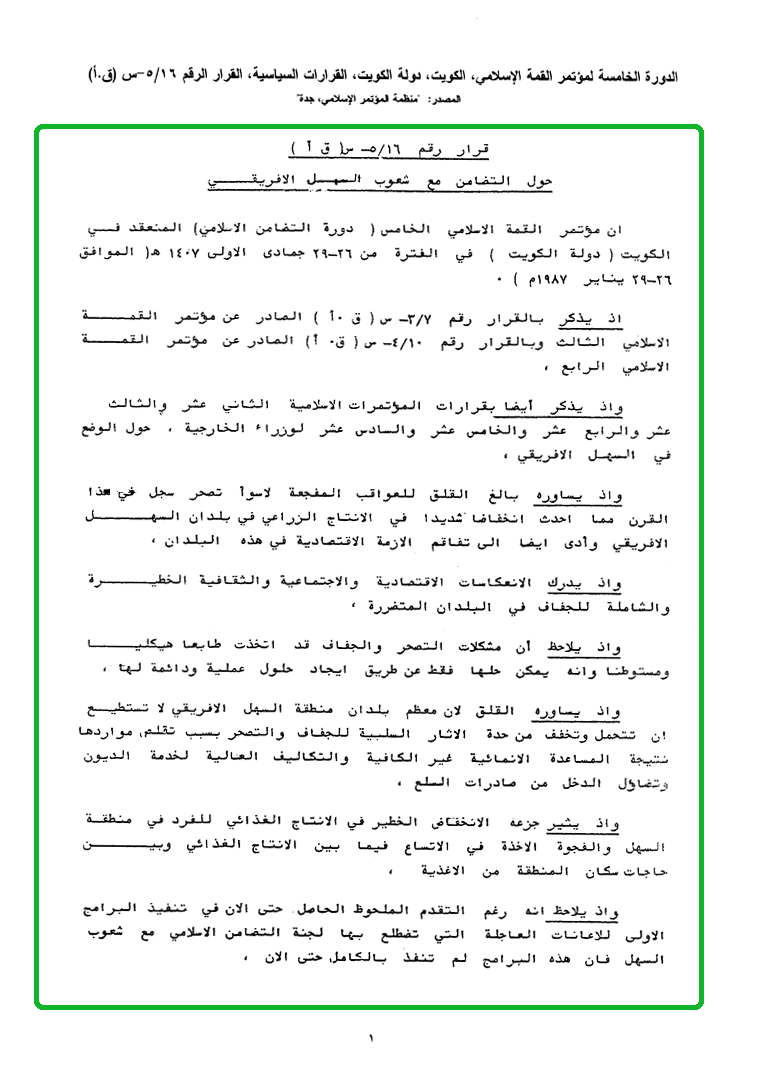 الدورة الخامسة لمؤتمر القمة الإسلامي، الكويت، دولة الكويت، القرارات السياسية، القرار الرقم ٥/١٦-س (ق.أ)
المصدر: "منظمة المؤتمر الإسلامي، جدة"
قرار رقم ٥/١٦- س( ق أ )
حول التضامن مع شعوب السهل الافريقي
ان مؤتمر القمة الاسلامي الخامس ( دورة التضامن الاسلامي) المنعقد في
الكويت ( دولة الكويت ) في الفترة من ٢٦-٢٩ جمادى الاولى ١٤٠٧ ه( الموافق
٢٦-٢٩ يناير ١٩٨٧م ) ٠
اذ يذكر بالقرار رقم ٣/٧- س ( ق ٠أ ) الصادر عن مؤتمر القمة
الاسلامي الثالث وبالقرار رقم ٤/١٠- س ( ق٠ أ ) الصادر عن مؤتمر القمة
الاسلامي الرابع ،
واذ يذكر أيضا بقرارات المؤتمرات الاسلامية الثاني عشر والثالث
عشر والرابع عشر والخامس عشر والسادس عشر لوزراء الخارجية ، حول الوضع
في السهل الافريقي ،
واذ يساوره بالغ القلق للعواقب المفجعة لاسوأ تصحر سجل في هذا
القرن مما احدث انخفاضا شديدا في الانتاج الزراعي في بلدان السهل
الافريقي وأدى ايضا الى تفاقم الازمة الاقتصادية في هذه البلدان ،
واذ يدرك الانعكاسات الاقتصادية والاجتماعية والثقافية الخطيرة
والشاملة للجفاف في البلدان المتضررة ،
واذ يلاحظ أن مشكلات التصحر والجفاف قد اتخذت طابعا هيكليا
ومستوطنا وانه يمكن حلها فقط عن طريق ايجاد حلول عملية ودائمة لها ،
واذ يساوره القلق لان معظم بلدان منطقة السهل الافريقي لا تستطيع
ان تتحمل وتخفف من حدة الاثار السلبية للجفاف والتصحر بسبب تقلص مواردها
نتيجة المساعدة الانمائية غير الكافية والتكاليف العالية لخدمة الديون
وتضاؤل الدخل من صادرات السلع ،
واذ يثير جزعه الانخفاض الخطير في الانتاج الغذائي للفرد في منطقة
السهل والفجوة الاخذة في الاتساع فيما بين الانتاج الغذائي وبين
حاجات سكان المنطقة من الاغذية ،
واذ يلاحظ انه رغم التقدم الملحوظ الحاصل حتى الان في تنفيذ البرامج
الاولى للاعانات العاجلة التي تضطلع بها لجنة التضامن الاسلامي مع شعوب
السهل فان هذه البرامج لم تنفذ بالكامل حتى الان ،
١